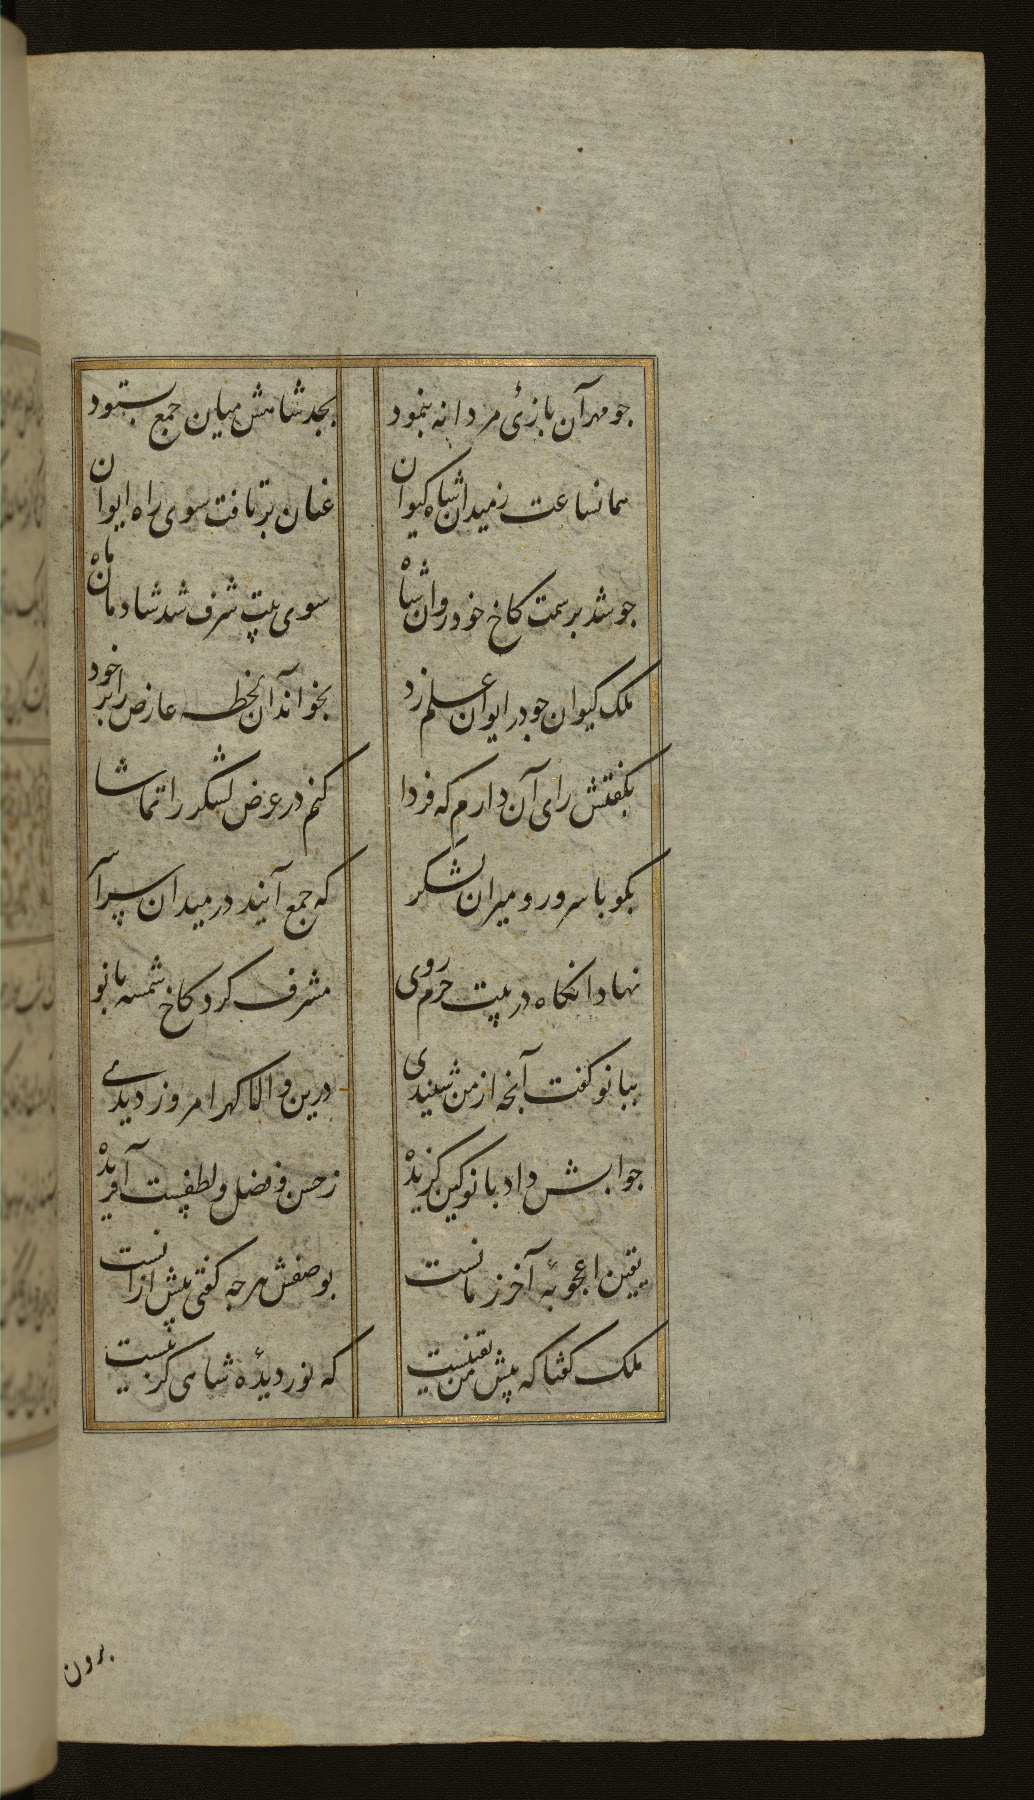 جو مهر آن بازئ مردانه بنمود بجد شاهش میان جمع بستود
همانساعت زمیدان شاه کیوان عنان برتافت سوی راه ایوان
جو شد بر سمت کاخ خود روان شاه سوی بیت شرف شد شادمان ماه
ملک کیوان جو در ایوان علم زد بخواند آن لحظه عارض را بر خود
بکفتش رای آن دارم که فردا کنم در عرض لشکر را تماشا
بکو با سرور و میران لشکر که جمع آیند در میدان سراسر
نهاد انکاه در بیت حرم روی مشرف کرد کاخ شمسه بانو
ببانو کفت آنچه از من شنیدی درین والا کهر امروز دیدی
جوابش داد بانو کین کزیده ز حسن و فضل و لطفست آفریده
یقین اعجوبهٔ آخر زمانست بوصفش هرجه کفتی بیش ازانست
ملک کفتا که پیش من یقینست که نور دیدهٔ شاهی کزینست
برون